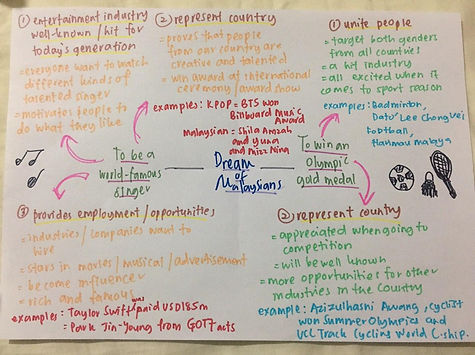 ① entertainment industry
well-known / hit for
today's generation
= everyone want to watch
different kinds of
talented singer
= motivates people to
do what they like
② represent country
= proves that people
from our country are
creative and talented
= win award at international
ceremony / award show
examples: KPOP = BTS won
Billboard Music
Award
malaysian = Shila Amzah
and Yuna
and Mizz Nina
① unite people
= target both genders
from all countries
= a hit industry
= all excited when it
comes to sport reason
examples: Badminton,
Dato' Lee Chong Wei
Football,
Harimau malaya
To be a
world-famous
singer
Dream
of
Malaysians
To win an
Olympic
gold medal
③ provides employment / opportunities
= industries / companies want to
hire
= stars in movies / musical / advertisement
= become influencer
= rich and famous
examples: Taylor Swift was paid USD185m
= Park Jin-Young from GOT7 acts
② represent country
= appreciated when going to
competition
= will be well known
= more opportunities for other
industries in the Country
example: Azizulhasni Awang, cyclist
won Summer Olympics and
UCI Track Cycling World C-ship.